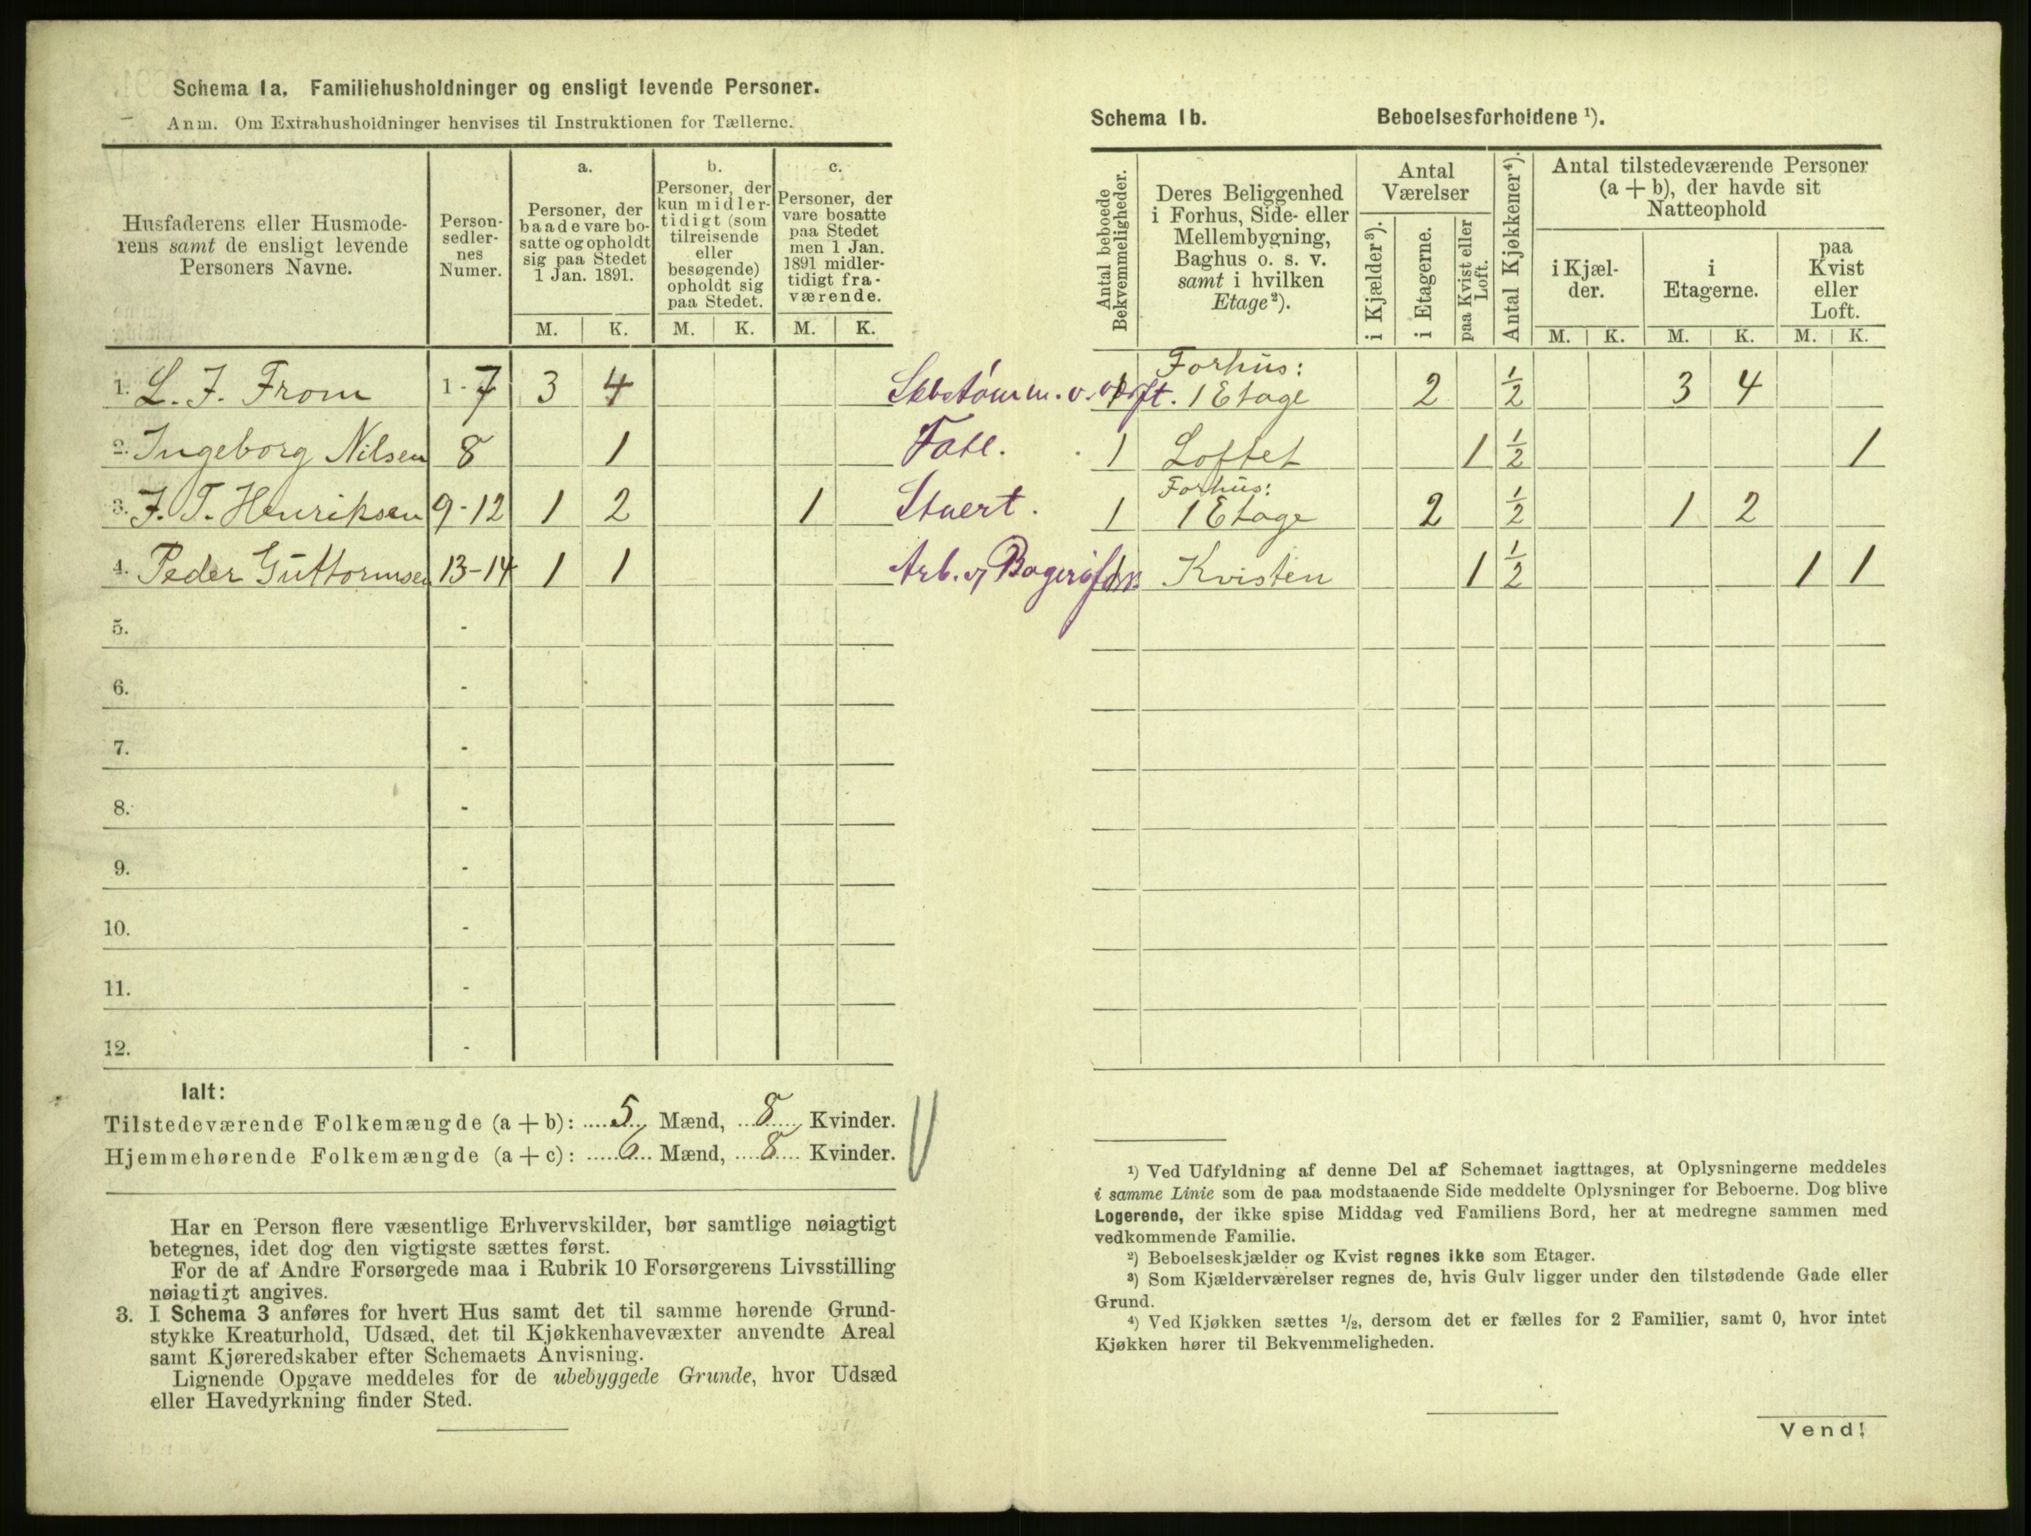 Schema 1a. Familiehusholdninger og ensligt levende Personer.
Anm. Om Extrahusholdninger henvises til Instruktionen for Tællerne.
Husfaderens eller Husmoderens samt de ensligt levende Personers Navne.
Personsedlernes Numer.
a.
Personer, der baade vare bosatte og opholdt sig paa Stedet 1 Jan. 1891.
b.
Personer, der kun midlertidigt (som tilreisende eller besøgende) opholdt sig paa Stedet.
c.
Personer, der vare bosatte paa Stedet men 1 Jan. 1891 midlertidigt fraværende.
M. K. M. K. M. K.
1. L. J. From 1-7 3 4
2. Ingeborg Nilsen 8 1
3. J. T. Henriksen 9-12 1 2 1
4. Peder Guttormsen 13-14 1 1
5. -
6. -
7. -
8. -
9. -
10. -
11. -
12. -
Ialt:
Tilstedeværende Folkemængde (a + b): 5 Mænd, 8 Kvinder.
Hjemmehørende Folkemængde (a + c): 6 Mænd, 8 Kvinder.
Har en Person flere væsentlige Erhvervskilder, bør samtlige nøiagtigt
betegnes, idet dog den vigtigste sættes først.
For de af Andre Forsørgede maa i Rubrik 10 Forsørgerens Livsstilling
nøiagtigt angives.
3. I Schema 3 anføres for hvert Hus samt det til samme hørende Grund-
stykke Kreaturhold, Udsæd, det til Kjøkkenhavevæxter anvendte Areal
samt Kjøreredskaber efter Schemaets Anvisning.
Lignende Opgave meddeles for de ubebyggede Grunde, hvor Udsæd
eller Havedyrkning finder Sted.
Schema 1b. Beboelsesforholdene ¹).
Antal beboede Bekvemmeligheder.
Deres Beliggenhed i Forhus, Side- eller Mellembygning, Baghus o. s. v. samt i hvilken Etage ²).
Antal Værelser
i Kjælder ³).
i Etagerne.
paa Kvist eller Loft.
Antal Kjøkkener ⁴).
Antal tilstedeværende Personer (a + b), der havde sit Natteophold
i Kjælder.
i Etagerne.
paa Kvist eller Loft.
M. K. M. K. M. K.
Forhus:
1 1 Etage 2 ½ 3 4
Fatt. 1 Loftet 1 ½ 1
Forhus:
Stuert. 1 1 Etage 2 ½ 1 2
Arb. 1 Kvisten 1 ½ 1 1
¹) Ved Udfyldning af denne Del af Schemaet iagttages, at Oplysningerne meddeles
i samme Linie som de paa modstaaende Side meddelte Oplysninger for Beboerne. Dog blive
Logerende, der ikke spise Middag ved Familiens Bord, her at medregne sammen med
vedkommende Familie.
²) Beboelseskjælder og Kvist regnes ikke som Etager.
³) Som Kjælderværelser regnes de, hvis Gulv ligger under den tilstødende Gade eller
Grund.
⁴) Ved Kjøkken sættes ½, dersom det er fælles for 2 Familier, samt 0, hvor intet
Kjøkken hører til Bekvemmeligheden.
Vend!